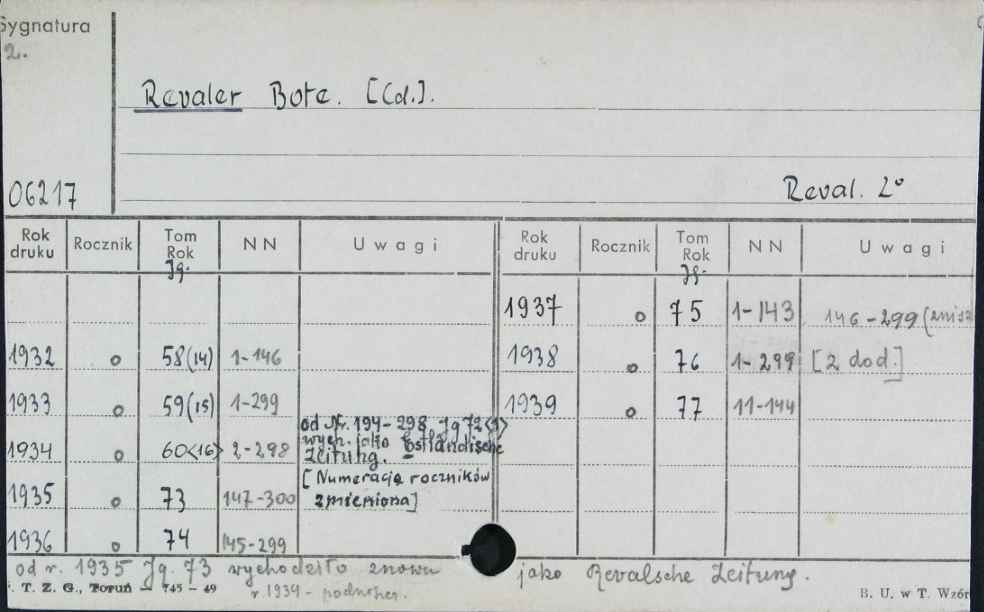 Sygnatura
2.
Revaler Bote. [Cd.].
06217
Reval. 2°
Rok druku Rocznik Tom Rok Jg. NN Uwagi Rok druku Rocznik Tom Rok Jg. NN Uwagi
1937 o 75 1-143 146-299 (znisz
1932 o 58(14) 1-146 1938 o 76 1-299 [z dod.]
1933 o 59(15) 1-299 1939 o 77 11-144
od Nr. 194-298, Jg 72<1>
1934 o 60<16> 2-298 wych. jako Estländische
Zeitung.
[Numeracja roczników
1935 o 73 147-300 zmieniona]
1936 o 74 145-299
od r. 1935 Jg. 73 wychodziło znowu jako Revalsche Zeitung.
T. Z. G., Toruń — 745 — 49 r. 1934 - B. U. w T. Wzór